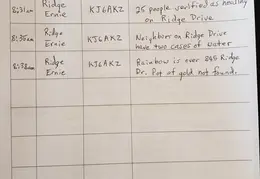 8:31am Ridge Ernie KJ6AKZ 25 people verified as healthy
on Ridge Drive
8:35am Ridge Ernie KJ6AKZ Neighbor on Ridge Drive
have two cases of water
8:38am Ridge Ernie KJ6AKZ Rainbow is over 885 Ridge
Dr. Pot of gold not found.